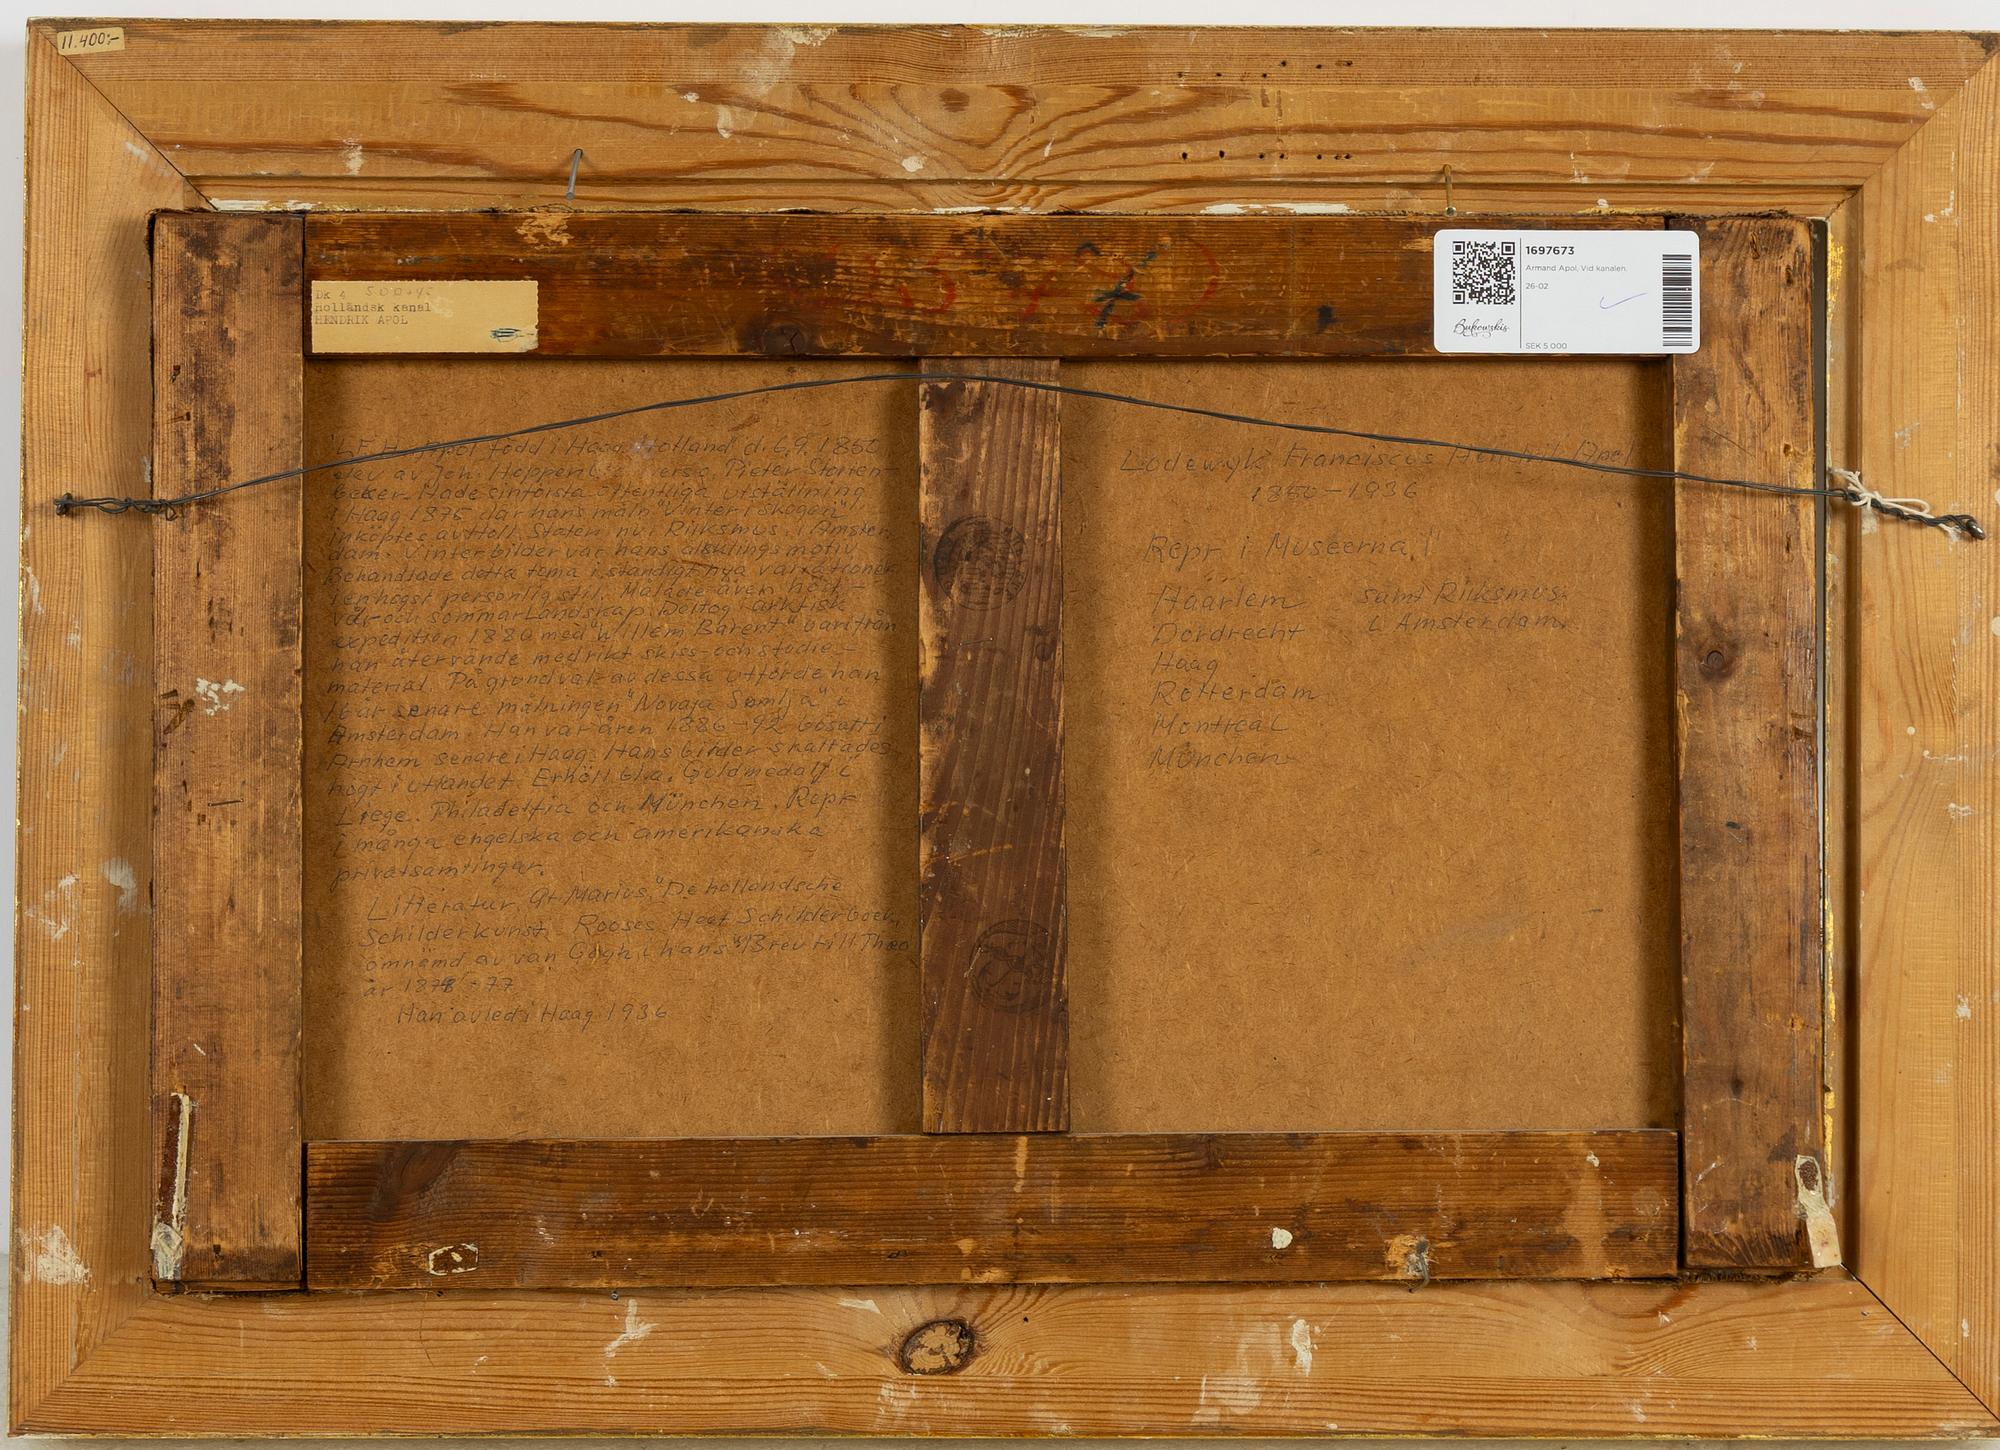 11.400:-
DK 4
Holländsk kanal
HENDRIK APOL
1697673
Armand Apol, Vid kanalen.
26-02
Bukowskis
SEK 5 000
L.F.H. Apol född i Haag Holland d. 6.9. 1850
elev av Joh. Hoppenb Pieter Storten-
beker. Hade sin första offentliga utställning
i Haag 1875 där hans måln "Vinter i skogen"
inköptes av Holl. Staten nu i Rijksmus. i Amster-
dam. Vinterbilder var hans älsklingsmotiv
Behandlade detta tema i ständigt nya variationer
i en högst personlig stil. Målade även höst-
vår- och sommarLandskap. Deltog i arktisk
expedition 1880 med "Willem Barent" varifrån
han återvände med rikt skiss- och studie-
material. På grundval av dessa utförde han
16 år senare målningen "Novaja Semlja" i
Amsterdam. Han var åren 1886-92 bosatt i
Arnhem senare i Haag. Hans bilder skattades
högt i utlandet. Erhöll bl.a. Guldmedalj i
Liege. Philadelfia och München. Repr
i många engelska och amerikanska
privatsamlingar.
Litteratur. Gr. Marius, "De hollandsche
Schilderkunst Rooses Heet Schilderboek,
omnemd av van Gogh i hans "Brev till Theo
år 1878 - 77
Han avled i Haag 1936
Lodewyk Franciscus Hendrik Apol
1850-1936
Repr. i Museerna!
Haarlem samt Rijksmus.
Dordrecht i Amsterdam.
Haag
Rotterdam
Montreal
München